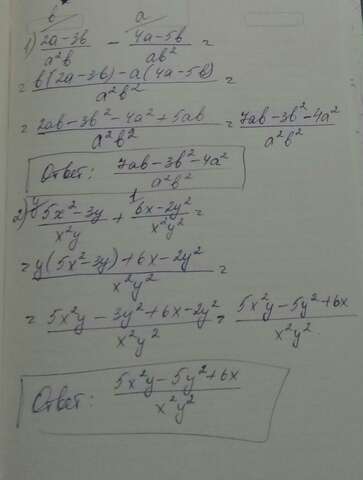 b a
1) (2a-3b)/(a²b) - (4a-5b)/(ab²) =
= (b(2a-3b)-a(4a-5b))/(a²b²) =
= (2ab-3b²-4a²+5ab)/(a²b²) = (7ab-3b²-4a²)/(a²b²)
Ответ: (7ab-3b²-4a²)/(a²b²)
y 1
2) (5x²-3y)/(x²y) + (6x-2y²)/(x²y²) =
= (y(5x²-3y)+6x-2y²)/(x²y²) =
= (5x²y-3y²+6x-2y²)/(x²y²) = (5x²y-5y²+6x)/(x²y²).
Ответ: (5x²y-5y²+6x)/(x²y²)